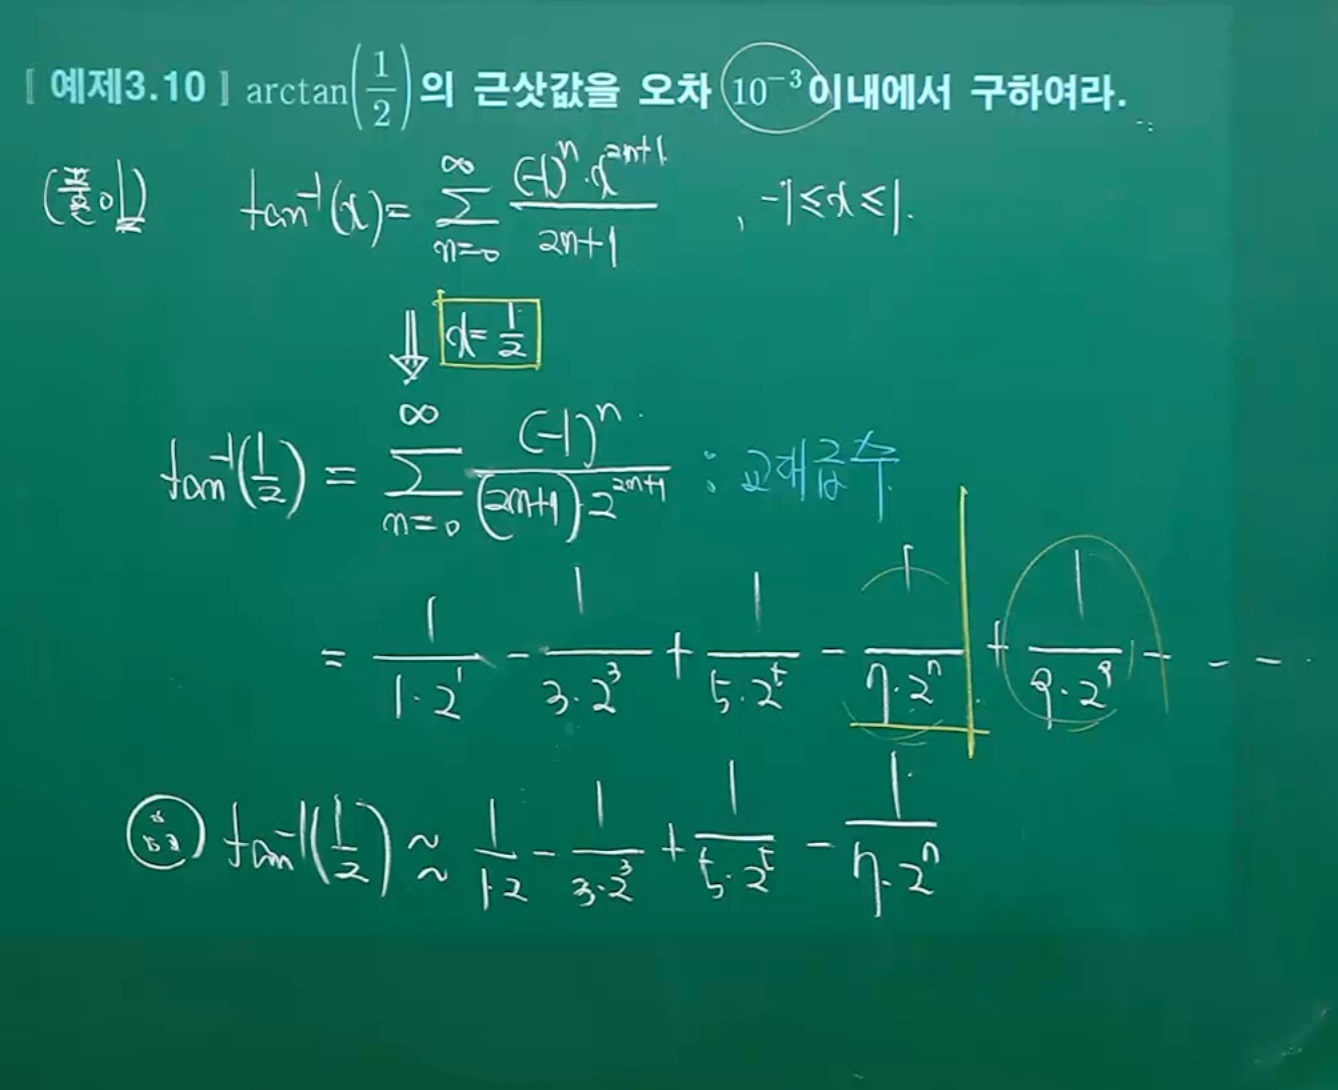 [예제3.10] arctan(1/2)의 근삿값을 오차 10⁻³이내에서 구하여라.
(풀이) tan⁻¹(x)= ∞ Σ n=0 (-1)ⁿ·x²ⁿ⁺¹ / 2n+1 , -1≤x≤1.
⇓ x=1/2
tan⁻¹(1/2) = ∞ Σ n=0 (-1)ⁿ / (2n+1)·2²ⁿ⁺¹ : 교대급수
= 1/1·2¹ - 1/3·2³ + 1/5·2⁵ - 1/7·2⁷ + 1/9·2⁹ - - - -
tan⁻¹(1/2) ≈ 1/1·2 - 1/3·2³ + 1/5·2⁵ - 1/7·2⁷